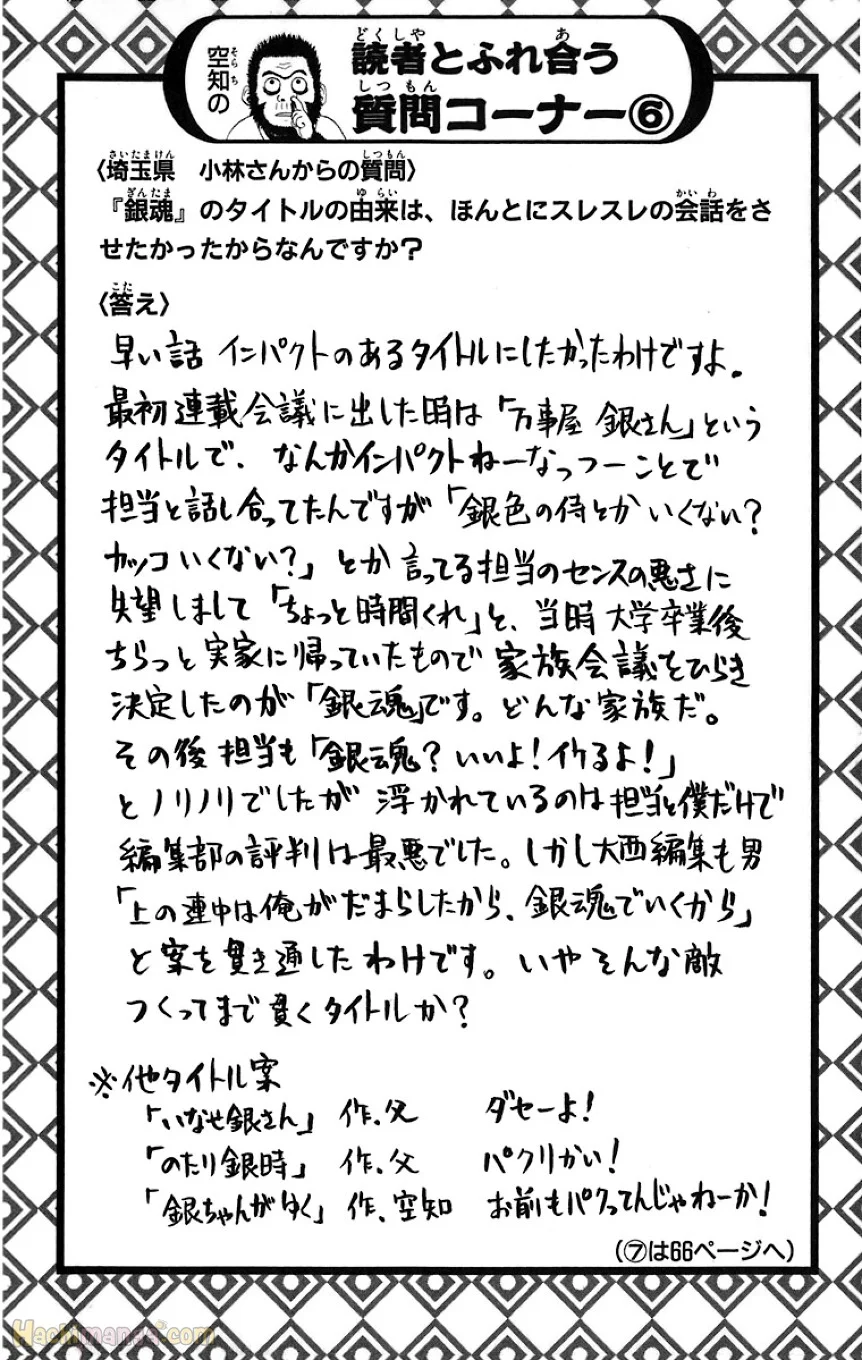 空知の
読者とふれ合う
質問コーナー⑥
〈埼玉県　小林さんからの質問〉
『銀魂』のタイトルの由来は、ほんとにスレスレの会話をさ
せたかったからなんですか？
〈答え〉
早い話 インパクトのあるタイトルにしたかったわけですよ。
最初連載会議に出した時は「万事屋 銀さん」という
タイトルで、なんかインパクトねーなっつーことで
担当と話し合ってたんですが「銀色の侍とか いくない？
カッコいくない？」とか 言ってる担当のセンスの悪さに
失望しまして「ちょっと時間くれ」と、当時 大学卒業後
ちらっと実家に帰っていたもので 家族会議をひらき
決定したのが「銀魂」です。どんな家族だ。
その後 担当も「銀魂？いいよ！イケるよ！」
とノリノリでしたが 浮かれているのは担当と僕だけで
編集部の評判は最悪でした。しかし大西編集も男
「上の連中は俺がだまらしたから、銀魂でいくから」
と案を貫き通したわけです。いやそんな敵
つくってまで貫くタイトルか？
※他タイトル案
「いなせ銀さん」 作、父 ダセーよ！
「のたり銀時」 作、父 パクリかい！
「銀ちゃんがゆく」 作、空知 お前もパクってんじゃねーか！
（⑦は66ページへ）
Hachimanga.com